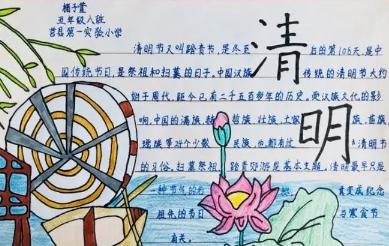 杨子萱
五年级八班
莒县第一实验小学
清明
清明节又叫踏青节,是冬至后的第106天,是中
国传统节日,是祭祖和扫墓的日子。中国汉族传统的清明节大约
始于周代,距今已有二千五百多年的历史。受汉族文化的影
响,中国的满族、赫哲族、壮族、土家族、苗族、
瑶族等24个少数民族,也都有过清明节
的习俗。扫墓祭祖、踏青郊游是基本主题。清明最早只是
一种节气的
为纪念
祖先的节日
与寒食节
有关。